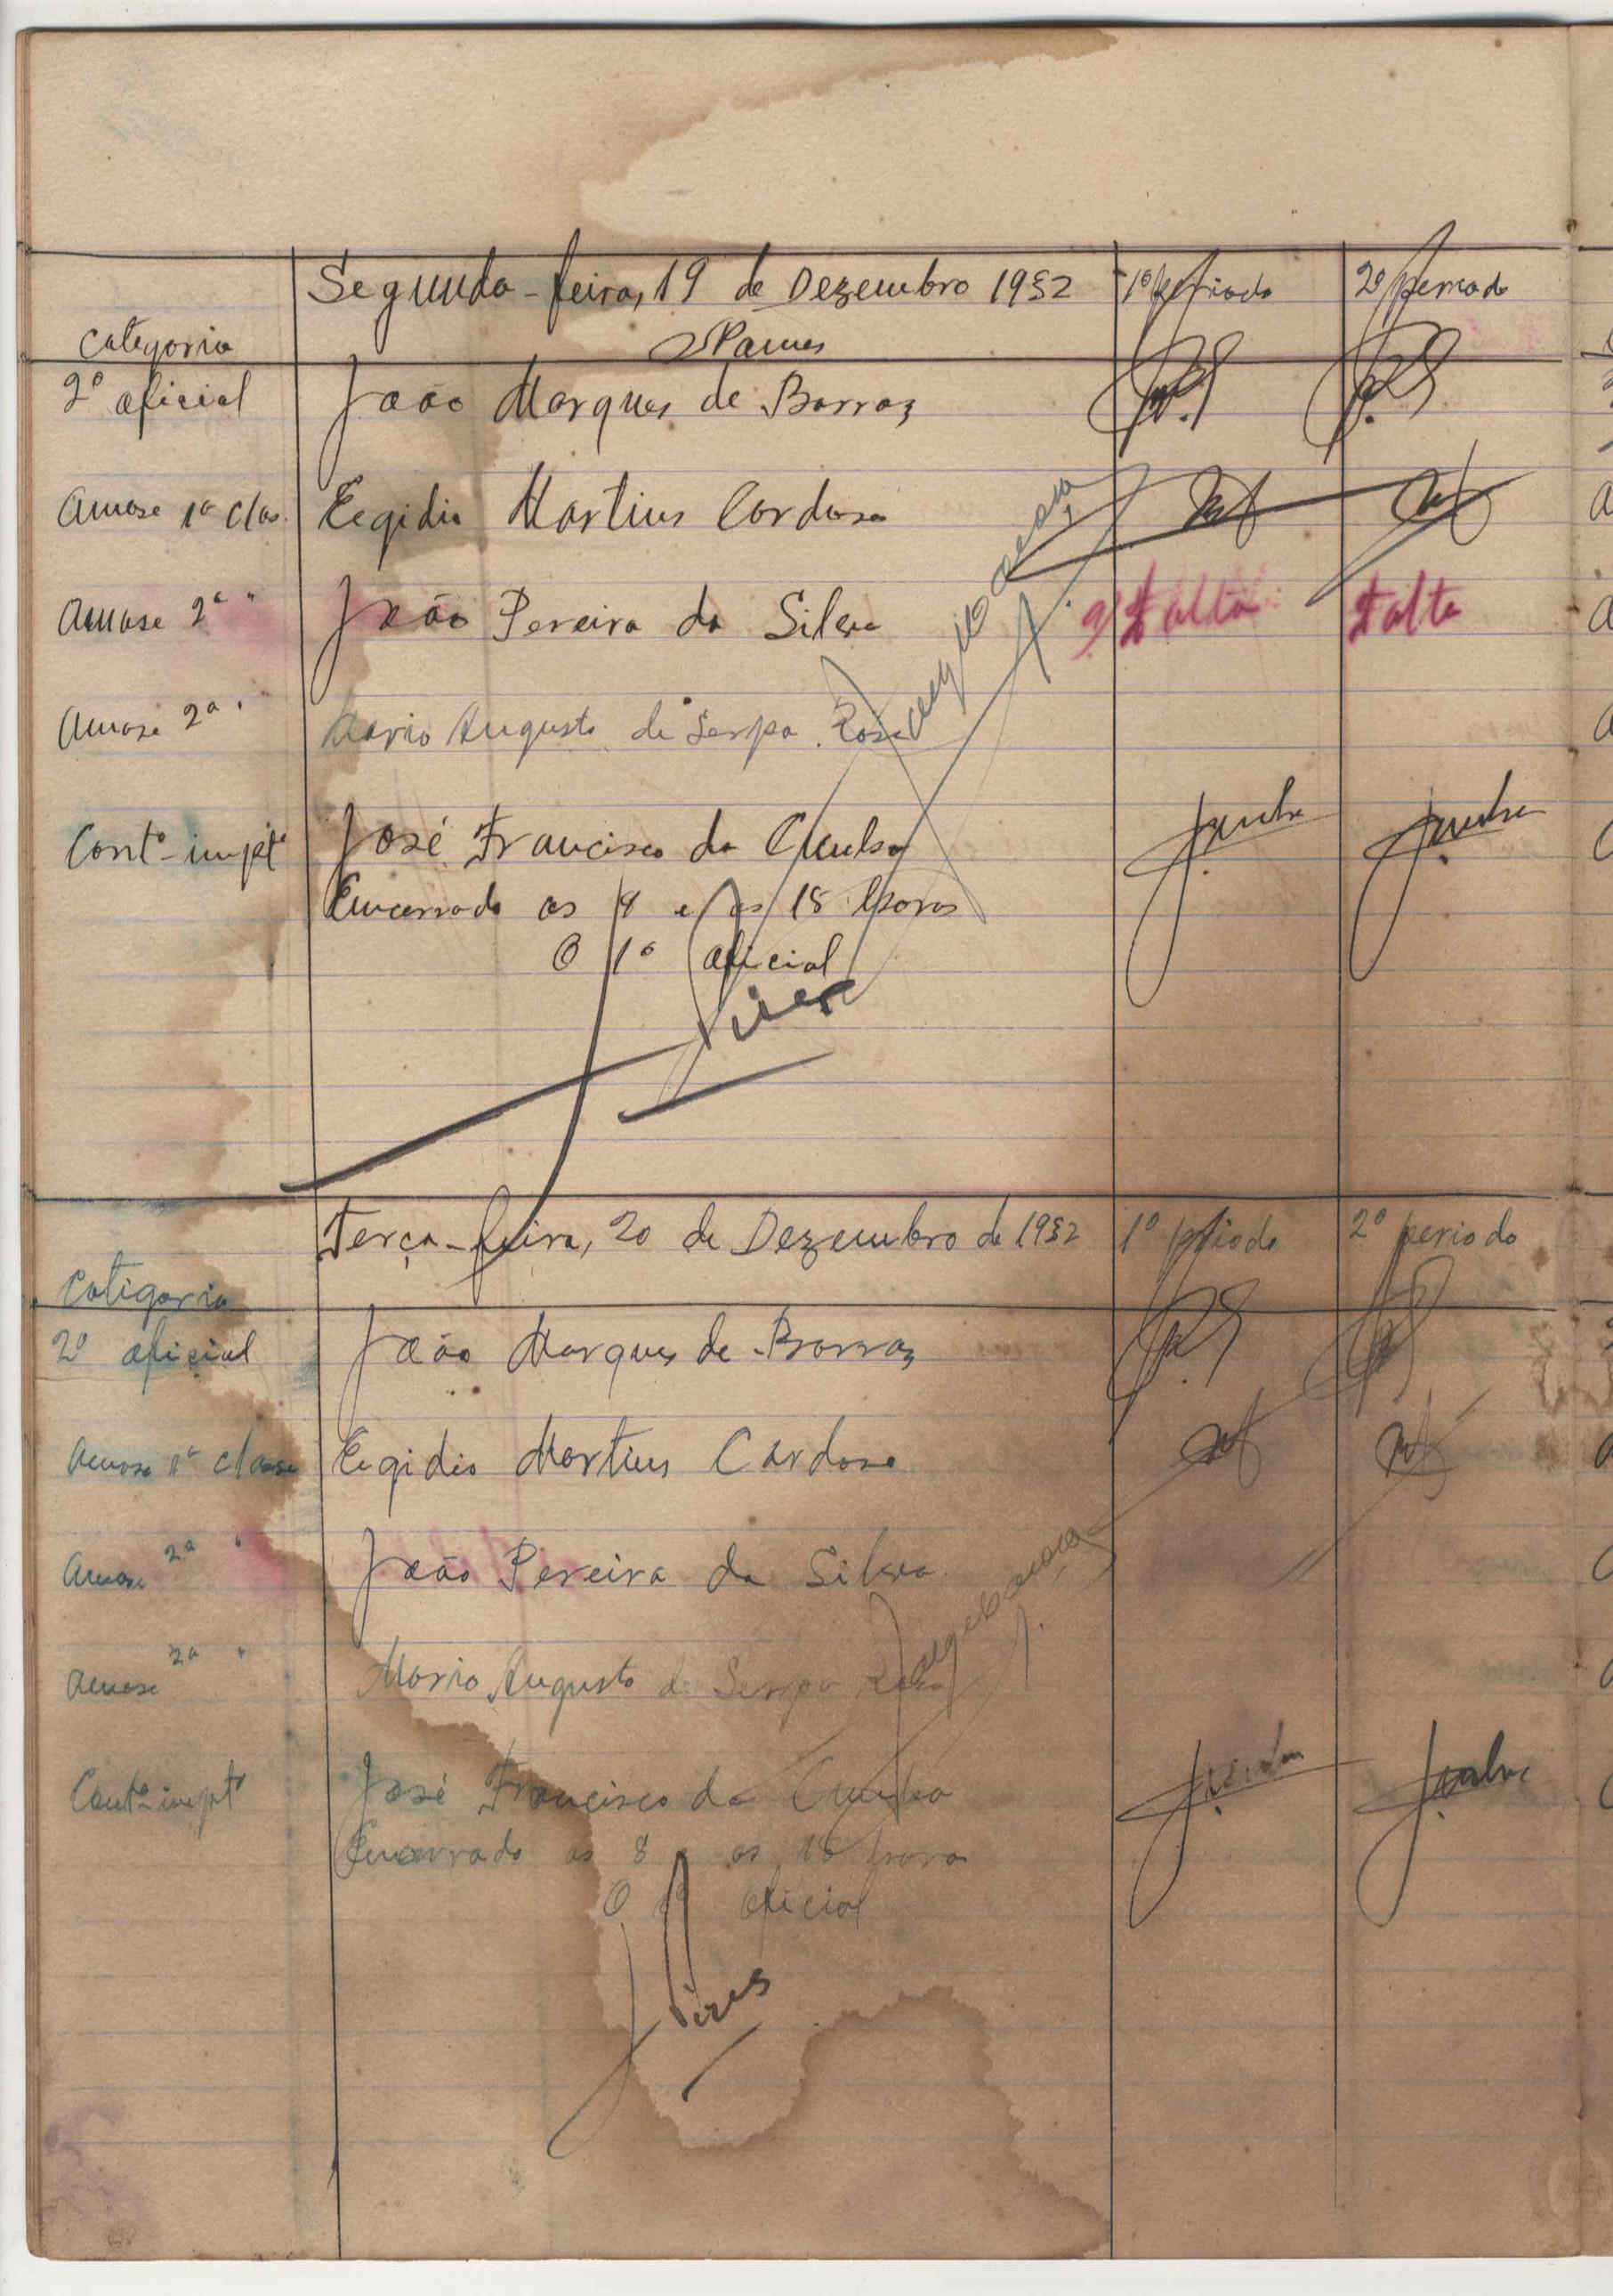 Segunda-feira, 19 de Dezembro 1932 1º periodo 2º periodo
Categoria Nomes
2º oficial João Marques de Barros
1ª clas. Egidio Martins Cardoso
2ª " João Pereira da Silva Falta Falta
2ª " Mario Augusto de Serpa Rosa
Contº-impt José Francisco da Cunha JCunha JCunha
Encerrado as 8 e as 18 horas
O 1º oficial
Pires
Terça-feira, 20 de Dezembro de 1932 1º periodo 2º periodo
Categoria
2º oficial João Marques de Barros
1ª classe Egidio Martins Cardoso
2ª " João Pereira da Silva
2ª " Mario Augusto de Serpa Rosa
Contº-impt José Francisco da Cunha JCunha JCunha
Encerrado as 8 e as 18 horas
O 1º oficial
Pires